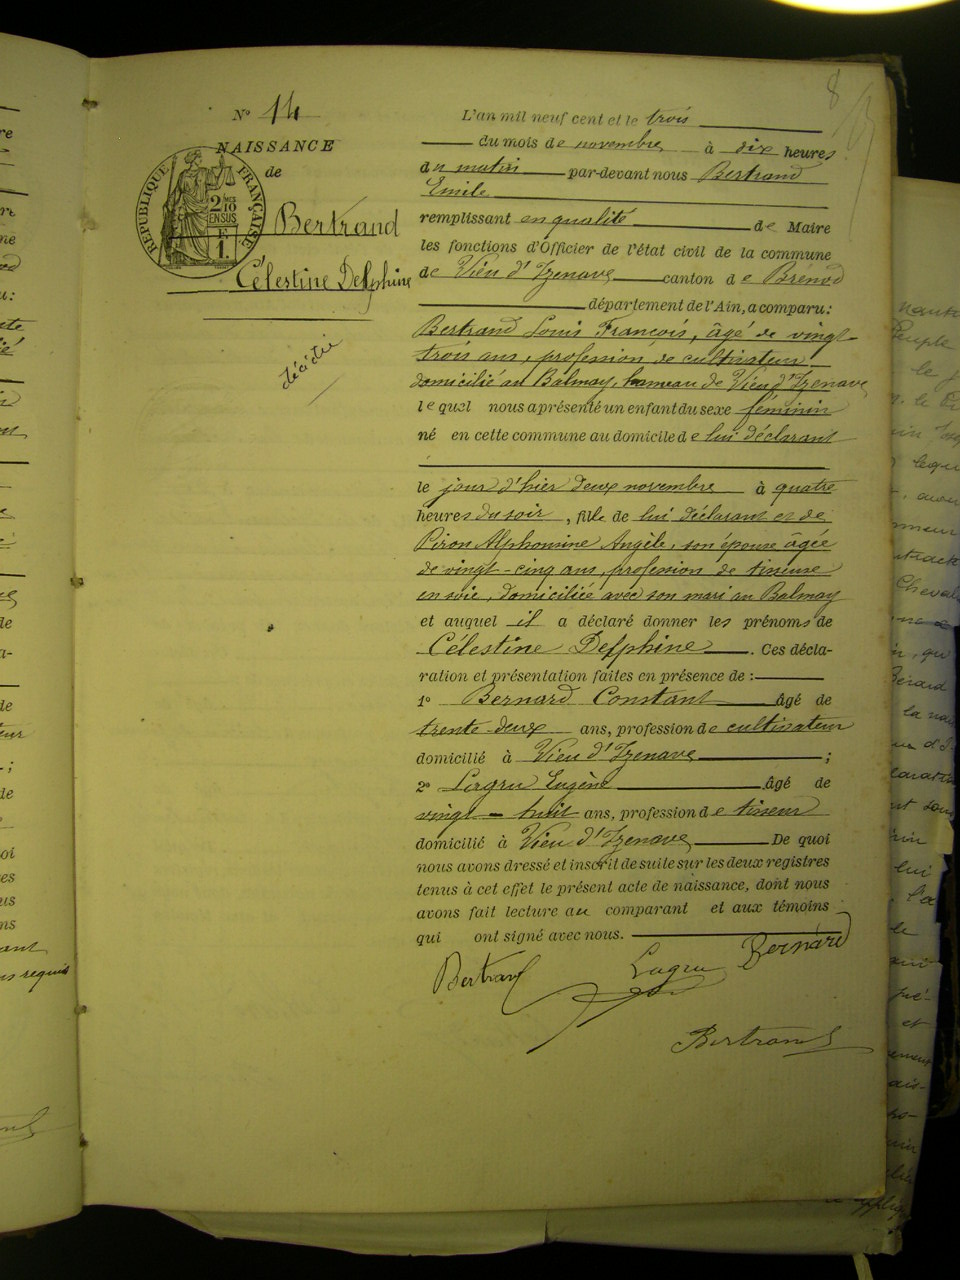 8
N° 14
NAISSANCE
de
RÉPUBLIQUE FRANÇAISE
2/10 EN SUS
F.
1.
Bertrand
Célestine Delphine
décédée
L'an mil neuf cent et le trois
du mois de novembre à dix heures
du matin par-devant nous Bertrand
Emile
remplissant en qualité de Maire
les fonctions d'Officier de l'état civil de la commune
de Vieu d'Izenave canton de Brenod
département de l'Ain, a comparu:
Bertrand Louis François, âgé de vingt-
trois ans, profession de cultivateur
domicilié au Balmay, hameau de Vieu d'Izenave
lequel nous a présenté un enfant du sexe féminin
né en cette commune au domicile de lui déclarant
le jour d'hier deux novembre à quatre
heures du soir, fille de lui déclarant et de
Piron Alphonsine Angèle, son épouse âgée
de vingt-cinq ans, profession de tisseuse
en soie, domiciliée avec son mari au Balmay
et auquel il a déclaré donner les prénoms de
Célestine Delphine. Ces décla-
ration et présentation faites en présence de :
1° Bernard Constant âgé de
trente-deux ans, profession de cultivateur
domicilié à Vieu d'Izenave ;
2° Lagru Eugène âgé de
vingt-huit ans, profession de tisseur
domicilié à Vieu d'Izenave De quoi
nous avons dressé et inscrit de suite sur les deux registres
tenus à cet effet le présent acte de naissance, dont nous
avons fait lecture au comparant et aux témoins
qui ont signé avec nous.
Bertrand Lagru Bernard
Bertrand